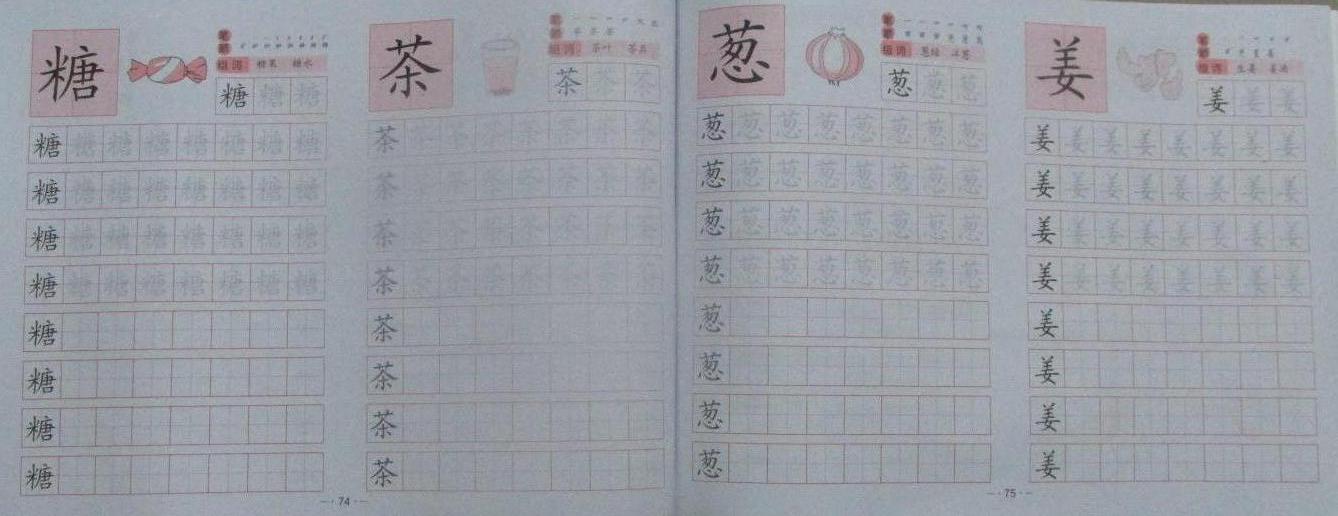 糖
笔顺
组词 糖果 糖水
糖 糖 糖
糖 糖 糖 糖 糖 糖 糖 糖
糖 糖 糖 糖 糖 糖 糖 糖
糖 糖 糖 糖 糖 糖 糖 糖
糖 糖 糖 糖 糖 糖 糖 糖
糖
糖
糖
糖
茶
笔顺
组词 茶叶 茶具
茶 茶 茶
茶 茶 茶 茶 茶 茶 茶 茶
茶 茶 茶 茶 茶 茶 茶 茶
茶 茶 茶 茶 茶 茶 茶 茶
茶 茶 茶 茶 茶 茶 茶 茶
茶
茶
茶
茶
74
葱
笔顺
组词 葱绿 洋葱
葱 葱 葱
葱 葱 葱 葱 葱 葱 葱 葱
葱 葱 葱 葱 葱 葱 葱 葱
葱 葱 葱 葱 葱 葱 葱 葱
葱 葱 葱 葱 葱 葱 葱 葱
葱
葱
葱
葱
姜
笔顺
组词 生姜 姜汤
姜 姜 姜
姜 姜 姜 姜 姜 姜 姜 姜
姜 姜 姜 姜 姜 姜 姜 姜
姜 姜 姜 姜 姜 姜 姜 姜
姜 姜 姜 姜 姜 姜 姜 姜
姜
姜
姜
姜
75